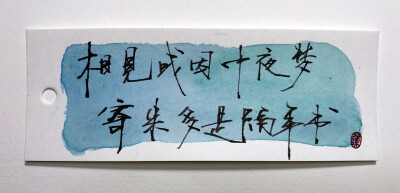 相見或因中夜梦
寄来多是隔年书